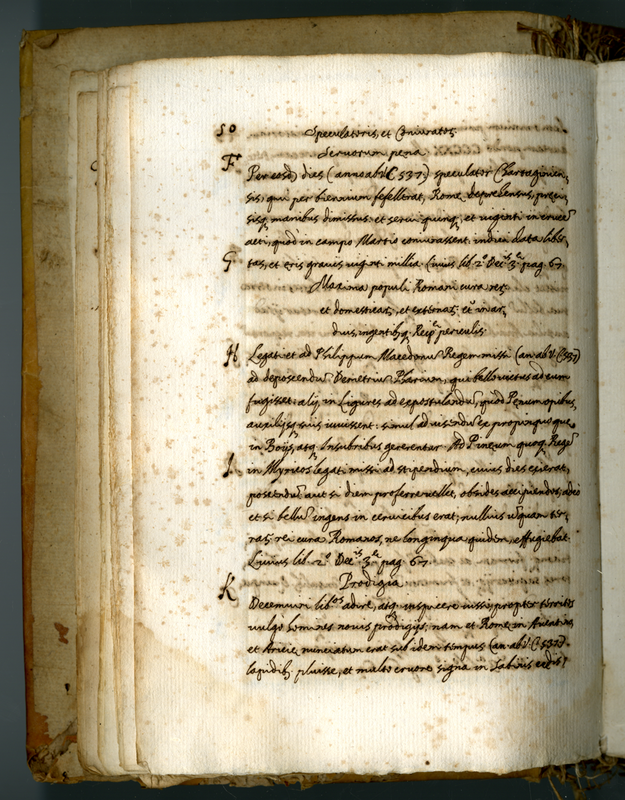 50
Speculatoris, et Coniuratorũ
Servorum pena
F Per eosdẽ dies (anno ab V.C. 537.) speculator Chartaginien,
sis, qui per biennium fefellerat, Romę deprehensus, pręci,
sisq̃ manibus dimissus: et servi quinq̃ et viginti in crucẽ
acti, quod in campo Martio coniurassent: indici data liber,
G tas, et ęris gravis viginti millia. Livius lib. 2.º Dec.ıs 3.ę pag. 67.
Maxima populi Romani cura rerũ
et domesticar̃, et externar̃: et in ar,
duis, ingentibq̃ Reip.ę periculis.
H Legati et ad Philippum Macedonũ Regem missi (an. ab V.C. 537)
ad deposcendũ Demetriũ Pharium, qui bello victus ad eum
fugisset: alij in Ligures ad expostulandũ, quod Pęnum opibus,
auxilijsq̃ suis iuvissent: simul ad visendũ ex propinquo que
in Boijs, atq̃ Insubribus gererentur. Ad Pineum quoq̃ Regẽ
I in Illyrios legati missi ad stipendium, cuius dies exierat,
poscendũ aut si diem proferre vellet, obsides accipiendos; adeo
et si bellũ ingens in cervicibus erat; nullius usquam ter,
rar̃ rei cura Romanos, ne longinqua quidem, effugiebat.
Livius lib. 2.º Dec.ıs 3.ę pag. 67.
Prodigia
K Decemviri lib.os adire, atq̃ inspicere iussi propter territos
vulgo homines novis prodigijs, nam et Romę in Aventino,
et Aricię nunciatum erat sub idem tempus (an. ab V.C. 537.)
lapidibq̃ pluisse, et multo cruore signa in Sabinis